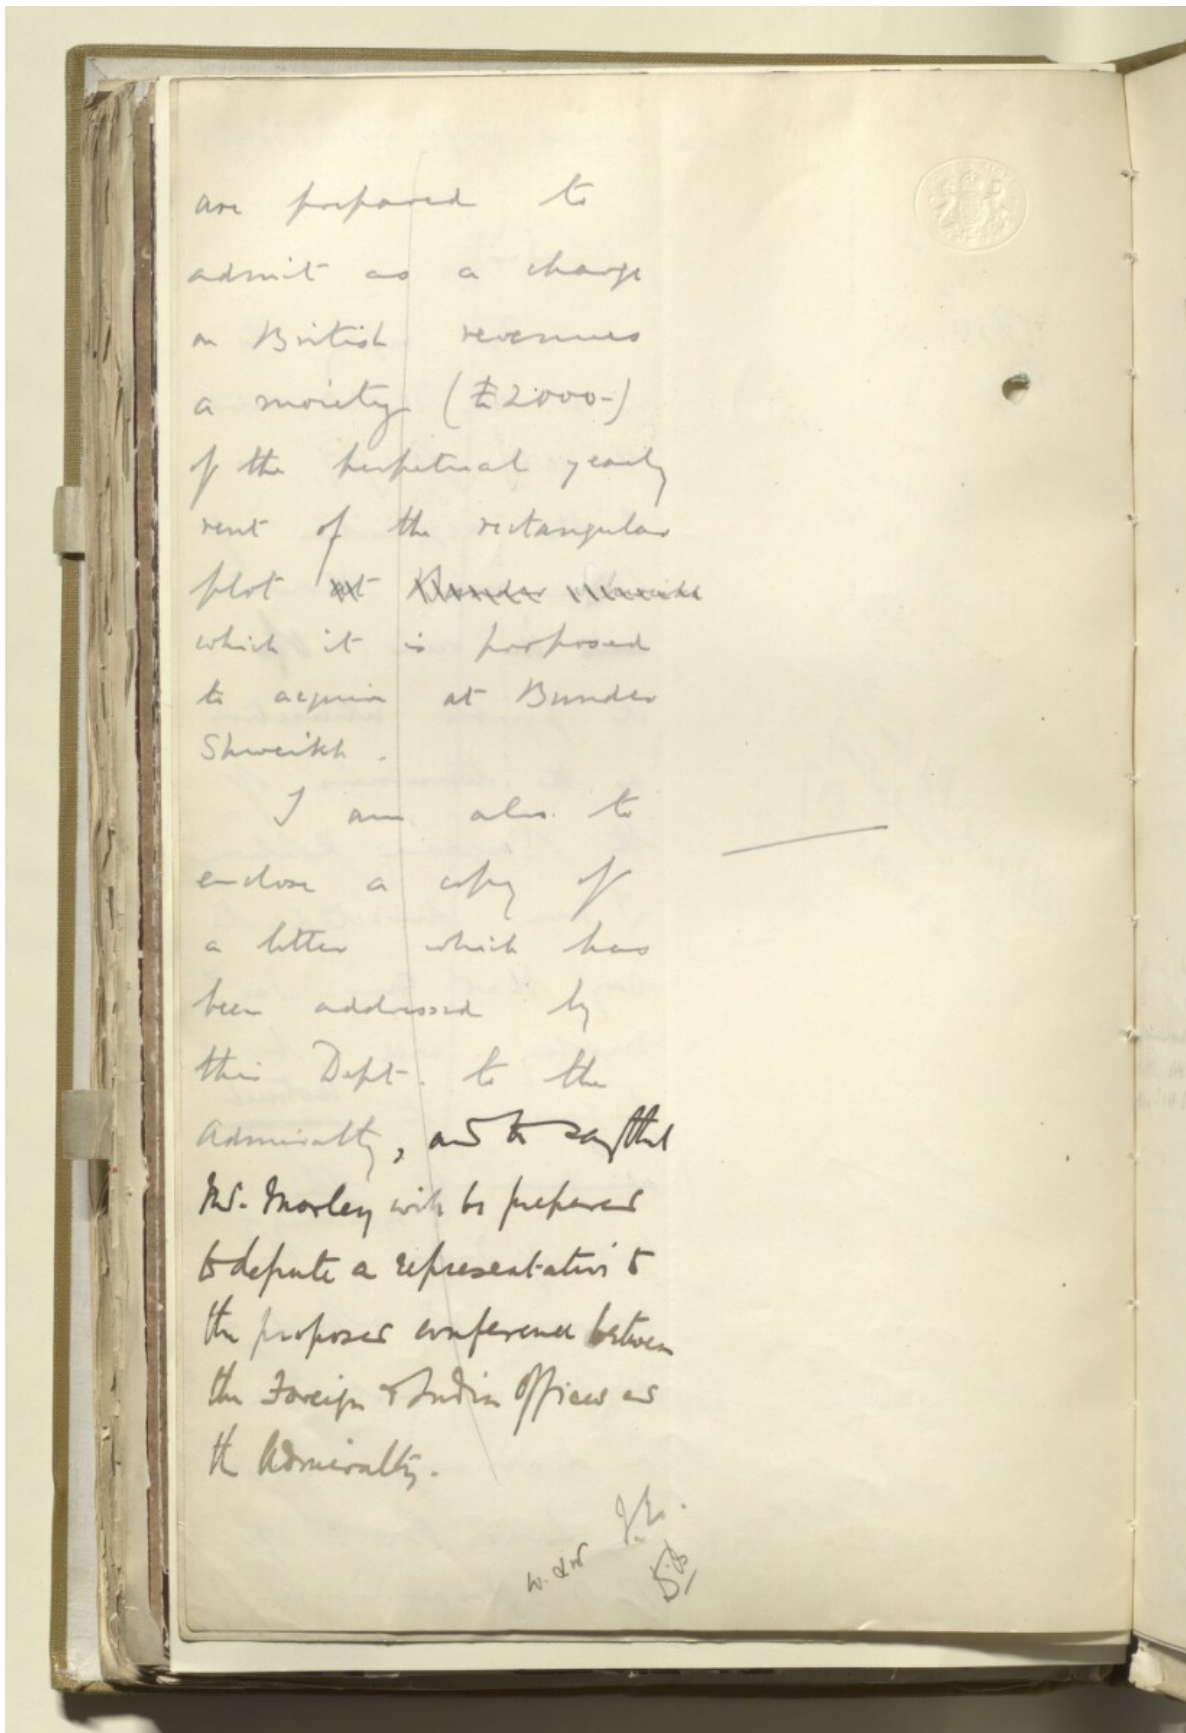 are prepared to
admit as a charge
on British revenues
a moiety (£2000-)
of the perpetual yearly
rent of the rectangular
plot at Bunder Shweikh
which it is proposed
to acquire at Bunder
Shweikh.
I am also to
enclose a copy of
a letter which has
been addressed by
this Dept. to the
Admiralty, and to say that
Mr. Morley will be prepared
to depute a representative to
the proposed conference between
the Foreign & India Offices and
the Admiralty.